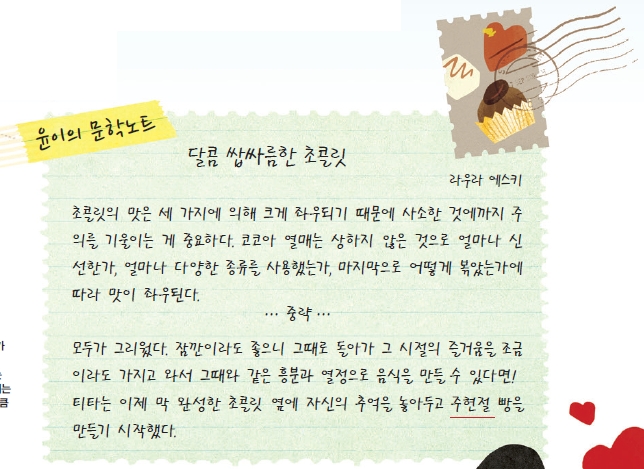 윤이의 문학노트
달콤 쌉싸름한 초콜릿
라우라 에스키
초콜릿의 맛은 세 가지에 의해 크게 좌우되기 때문에 사소한 것에까지 주
의를 기울이는 게 중요하다. 코코아 열매는 상하지 않은 것으로 얼마나 신
선한가, 얼마나 다양한 종류를 사용했는가, 마지막으로 어떻게 볶았는가에
따라 맛이 좌우된다.
… 중략 …
모두가 그리웠다. 잠깐이라도 좋으니 그때로 돌아가 그 시절의 즐거움을 조금
이라도 가지고 와서 그때와 같은 흥분과 열정으로 음식을 만들 수 있다면!
티타는 이제 막 완성한 초콜릿 옆에 자신의 추억을 놓아두고 주현절 빵을
만들기 시작했다.